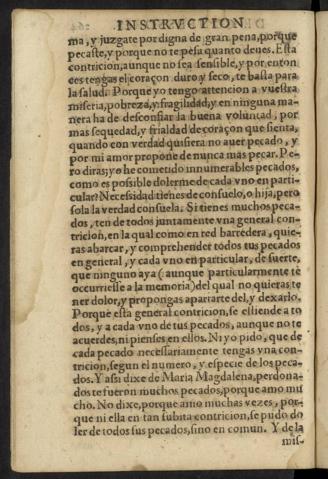 INSTRVCTION
ma, y juzgate por digna de gran pena, porque
pecaste, y porque no te pesa quanto deues. Esta
contricion, aunque no sea sensible, y por enton
ces tengas el coraçon duro y seco, te basta para
la salud. Porque yo tengo attencion a vuestra
miseria, pobreza, y fragilidad, y en ninguna ma-
nera ha de desconfiar la buena voluntad, por
mas sequedad, y frialdad de coraçon que sienta,
quando con verdad quisiera no auer pecado, y
por mi amor propone de nunca mas pecar. Pe-
ro diras; yo he cometido innumerables pecados,
como es possible dolerme de cada vno en parti-
cular? Necessidad tienes de consuelo, o hija, pero
sola la verdad consuela. Si tienes muchos peca-
dos, ten de todos juntamente vna general con-
tricion, en la qual como en red barredera, quie-
ras abarcar, y comprehender todos tus pecados
en general, y cada vno en particular, de suerte,
que ninguno aya (aunque particularmente te
occurriesse a la memoria) del qual no quieras te
ner dolor, y propongas apartarte del, y dexarlo.
Porque esta general contricion, se estiende a to
dos, y a cada vno de tus pecados, aunque no te
acuerdes, ni pienses en ellos. Ni yo pido, que de
cada pecado necessariamente tengas vna con-
tricion, segun el numero, y especie de los peca-
dos. Y assi dixe de Maria Magdalena, perdona-
dos te fueron muchos pecados, porque amo mu
cho. No dixe, porque amo muchas vezes, por-
que ni ella en tan subita contricion, se pudo do
ler de todos sus pecados, sino en comun. Y de la
mis-